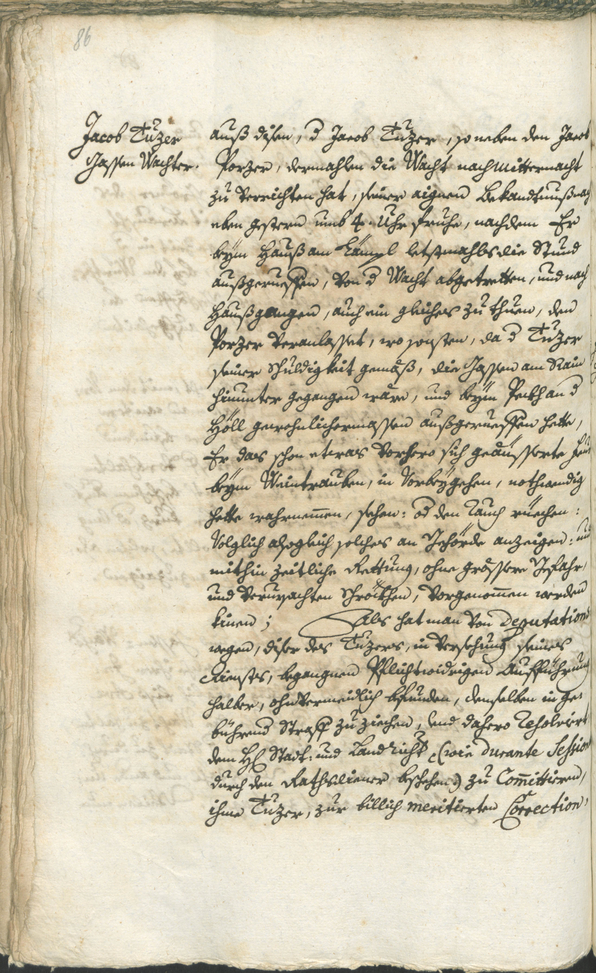 86
Jacob Tuzer
Gassen Wachter.
auß disen, d Jacob Tuzer, so neben den Jacob
Porzer, dermahlen die Wacht nach mitternacht
zu verrichten hat, seiner aignen Bekandtnuß nach
eben gestern umb 4. Uhr fruhe, nachdem Er
beÿm Hauß am letstmahls die Stund
außgerueffen, von d Wacht abgetretten, und nach
Hauß gangen, auch ein gleiches zu thuen, den
Porzer veranlasset, wo sonsten, da d Tuzer
seiner Schuldigkeit gemäß, die Gassen am Rain
hinunter gegangen wäre, und beÿm
Höll gewohnlichermassen außgerueffen hette,
Er das schon etwas vorhero sich geäusserte
beÿm Weintrauben, in Vorbeÿgehen, nothwendig
hette wahrnemmen, sehen: od den Rauch riechen:
Volglich alsogleich solches an Behörde anzeigen: und
mithin zeitliche Rettung, ohne grössere Gefahr,
und verursachten Schröckhen, vorgenommen werden
kinen; Als hat man von Deputations
wegen, diser des Tuzers, in Versehung seines
Diensts, begangnen Pflichtwidrigen Aufführung
halber, ohnvermeidlich befunden, demselben in ge-
bührend Straff zuziehen, und dahero
dem H Statt: und Landrichter (: wie durante Session
durch den Rathsdiener beschehen :) zu Committieren,
ihme Tuzer, zur billich meritierten Correction,